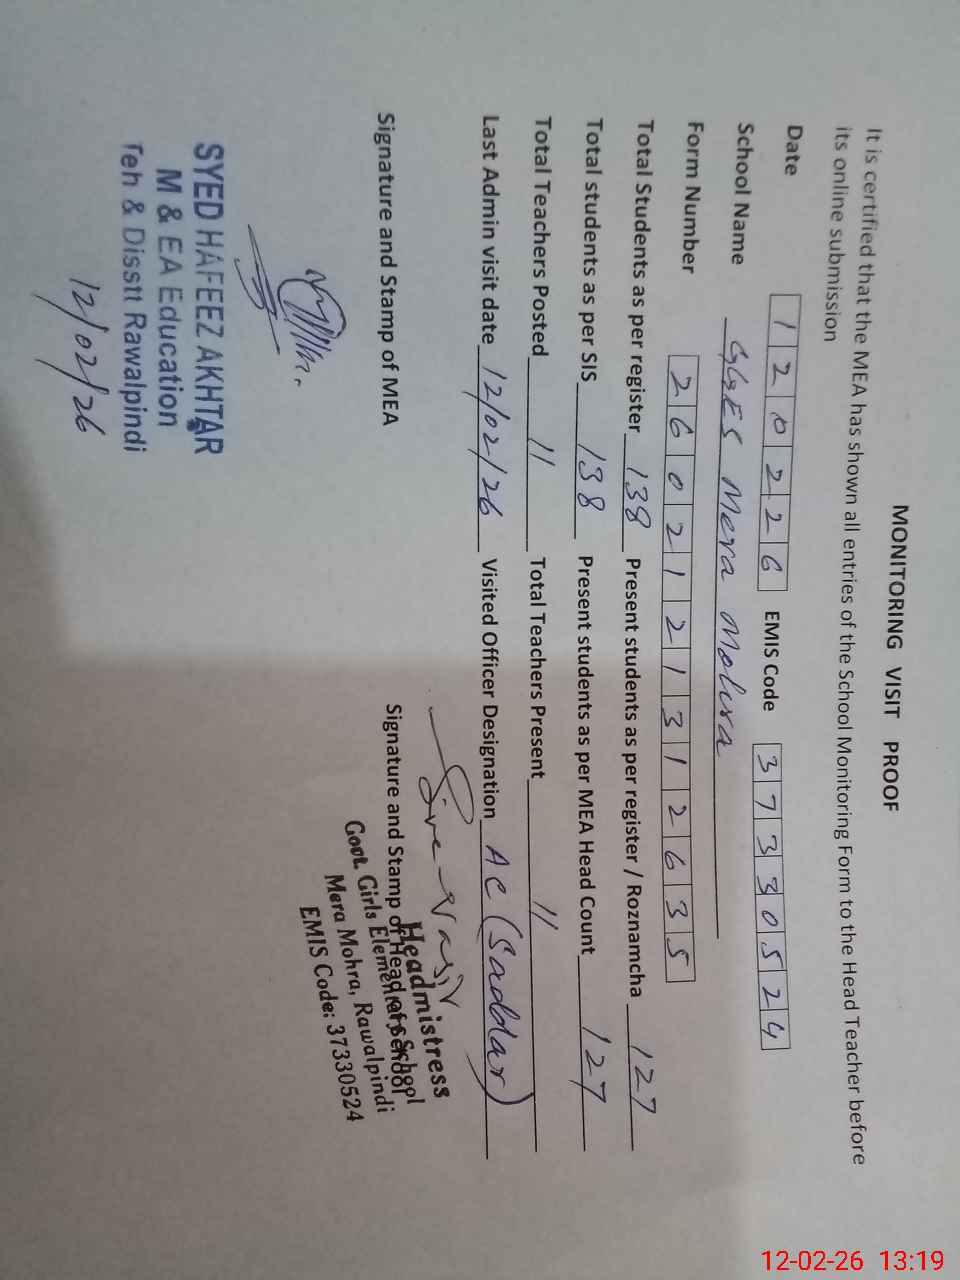 MONITORING VISIT PROOF
It is certified that the MEA has shown all entries of the School Monitoring Form to the Head Teacher before
its online submission
Date 120226 EMIS Code 37330524
School Name GGES Mera Mohra
Form Number 2602121312635
Total Students as per register 138 Present students as per register / Roznamcha 127
Total students as per SIS 138 Present students as per MEA Head Count 127
Total Teachers Posted 11 Total Teachers Present 11
Last Admin visit date 12/02/26 Visited Officer Designation AC (Saddar)
Signature and Stamp of MEA Signature and Stamp of Head of School
Headmistress
Govt. Girls Elementary School
Mera Mohra, Rawalpindi
EMIS Code: 37330524
SYED HAFEEZ AKHTAR
M & EA Education
Teh & Disstt Rawalpindi
12/02/26
12-02-26 13:19